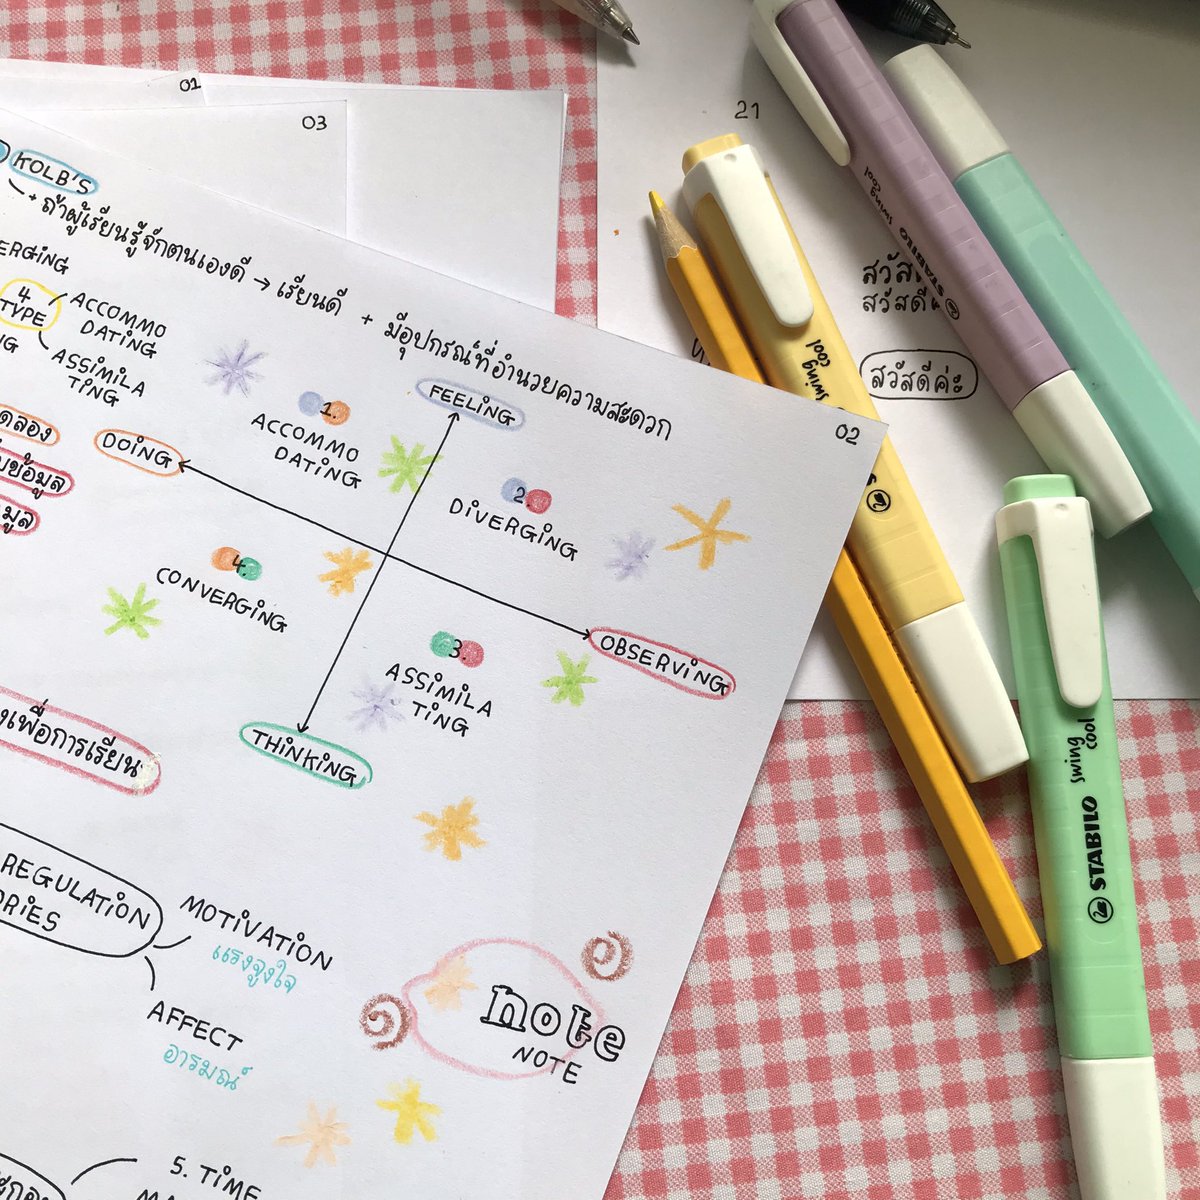 01
03
21
KOLB'S
ถ้าผู้เรียนรู้จักตนเองดี → เรียนดี + มีอุปกรณ์ที่อำนวยความสะดวก
02
4
TYPE
ACCOMMO
DATING
ASSIMILA
TING
FEELING
DOING
OBSERVING
THINKING
1.
ACCOMMO
DATING
2.
DIVERGING
3.
ASSIMILA
TING
4.
CONVERGING
เพื่อการเรียน
REGULATION
MOTIVATION
แรงจูงใจ
AFFECT
อารมณ์
note
NOTE
5. TIME
สวัสดีค่ะ
STABILO swing cool
swing cool
STABILO swing cool